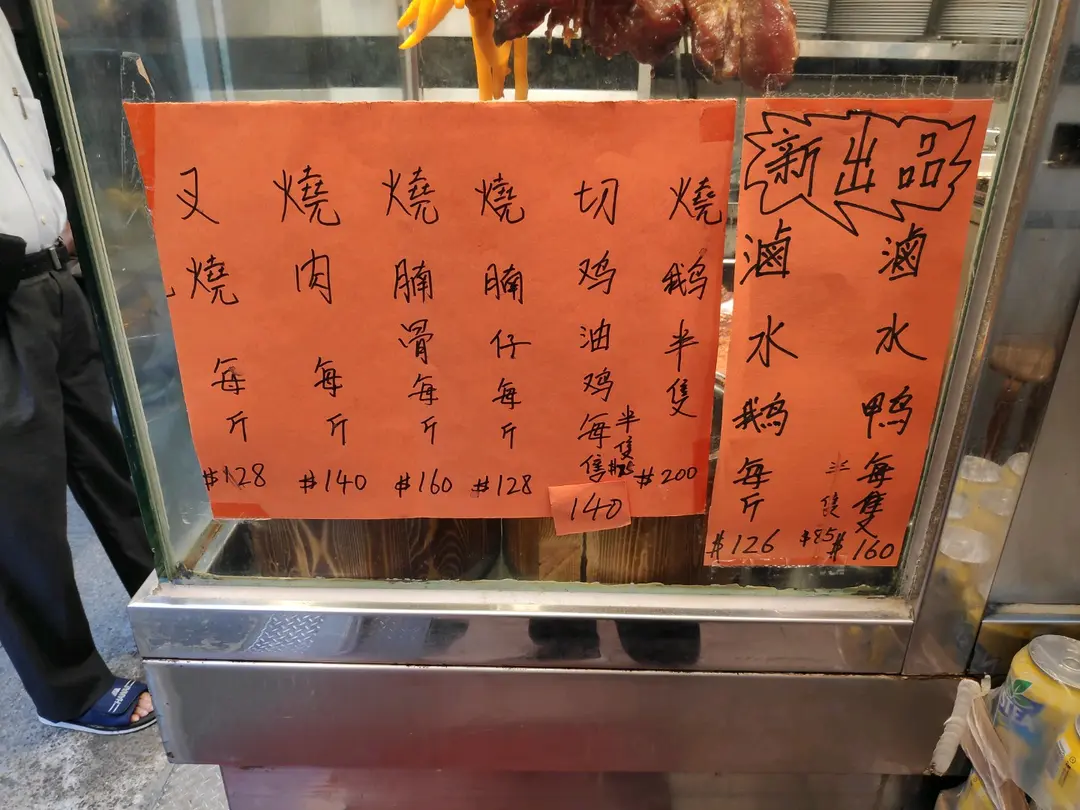 叉燒每斤 $128
燒肉每斤 $140
燒腩骨每斤 $160
燒腩仔每斤 $128
切鸡油鸡每隻 140
半隻 $75
燒鹅半隻 $200
新出品
滷水鹅每斤 $126
滷水鸭每隻 $160
半隻 $85